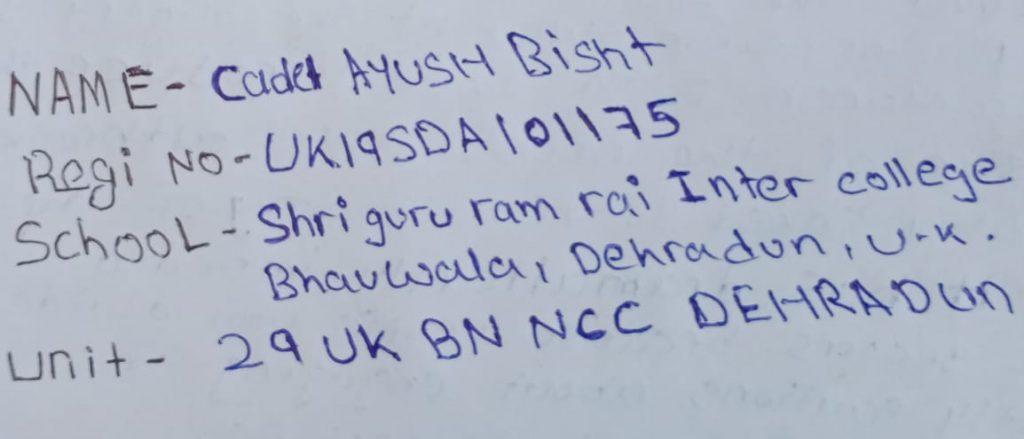 NAME - Cadet AYUSH Bisht
Regi NO - UK19SDA101175
SchooL - Shri guru ram rai Inter college
Bhauwala, Dehradun, U.K.
Unit - 29 UK BN NCC DEHRADUN